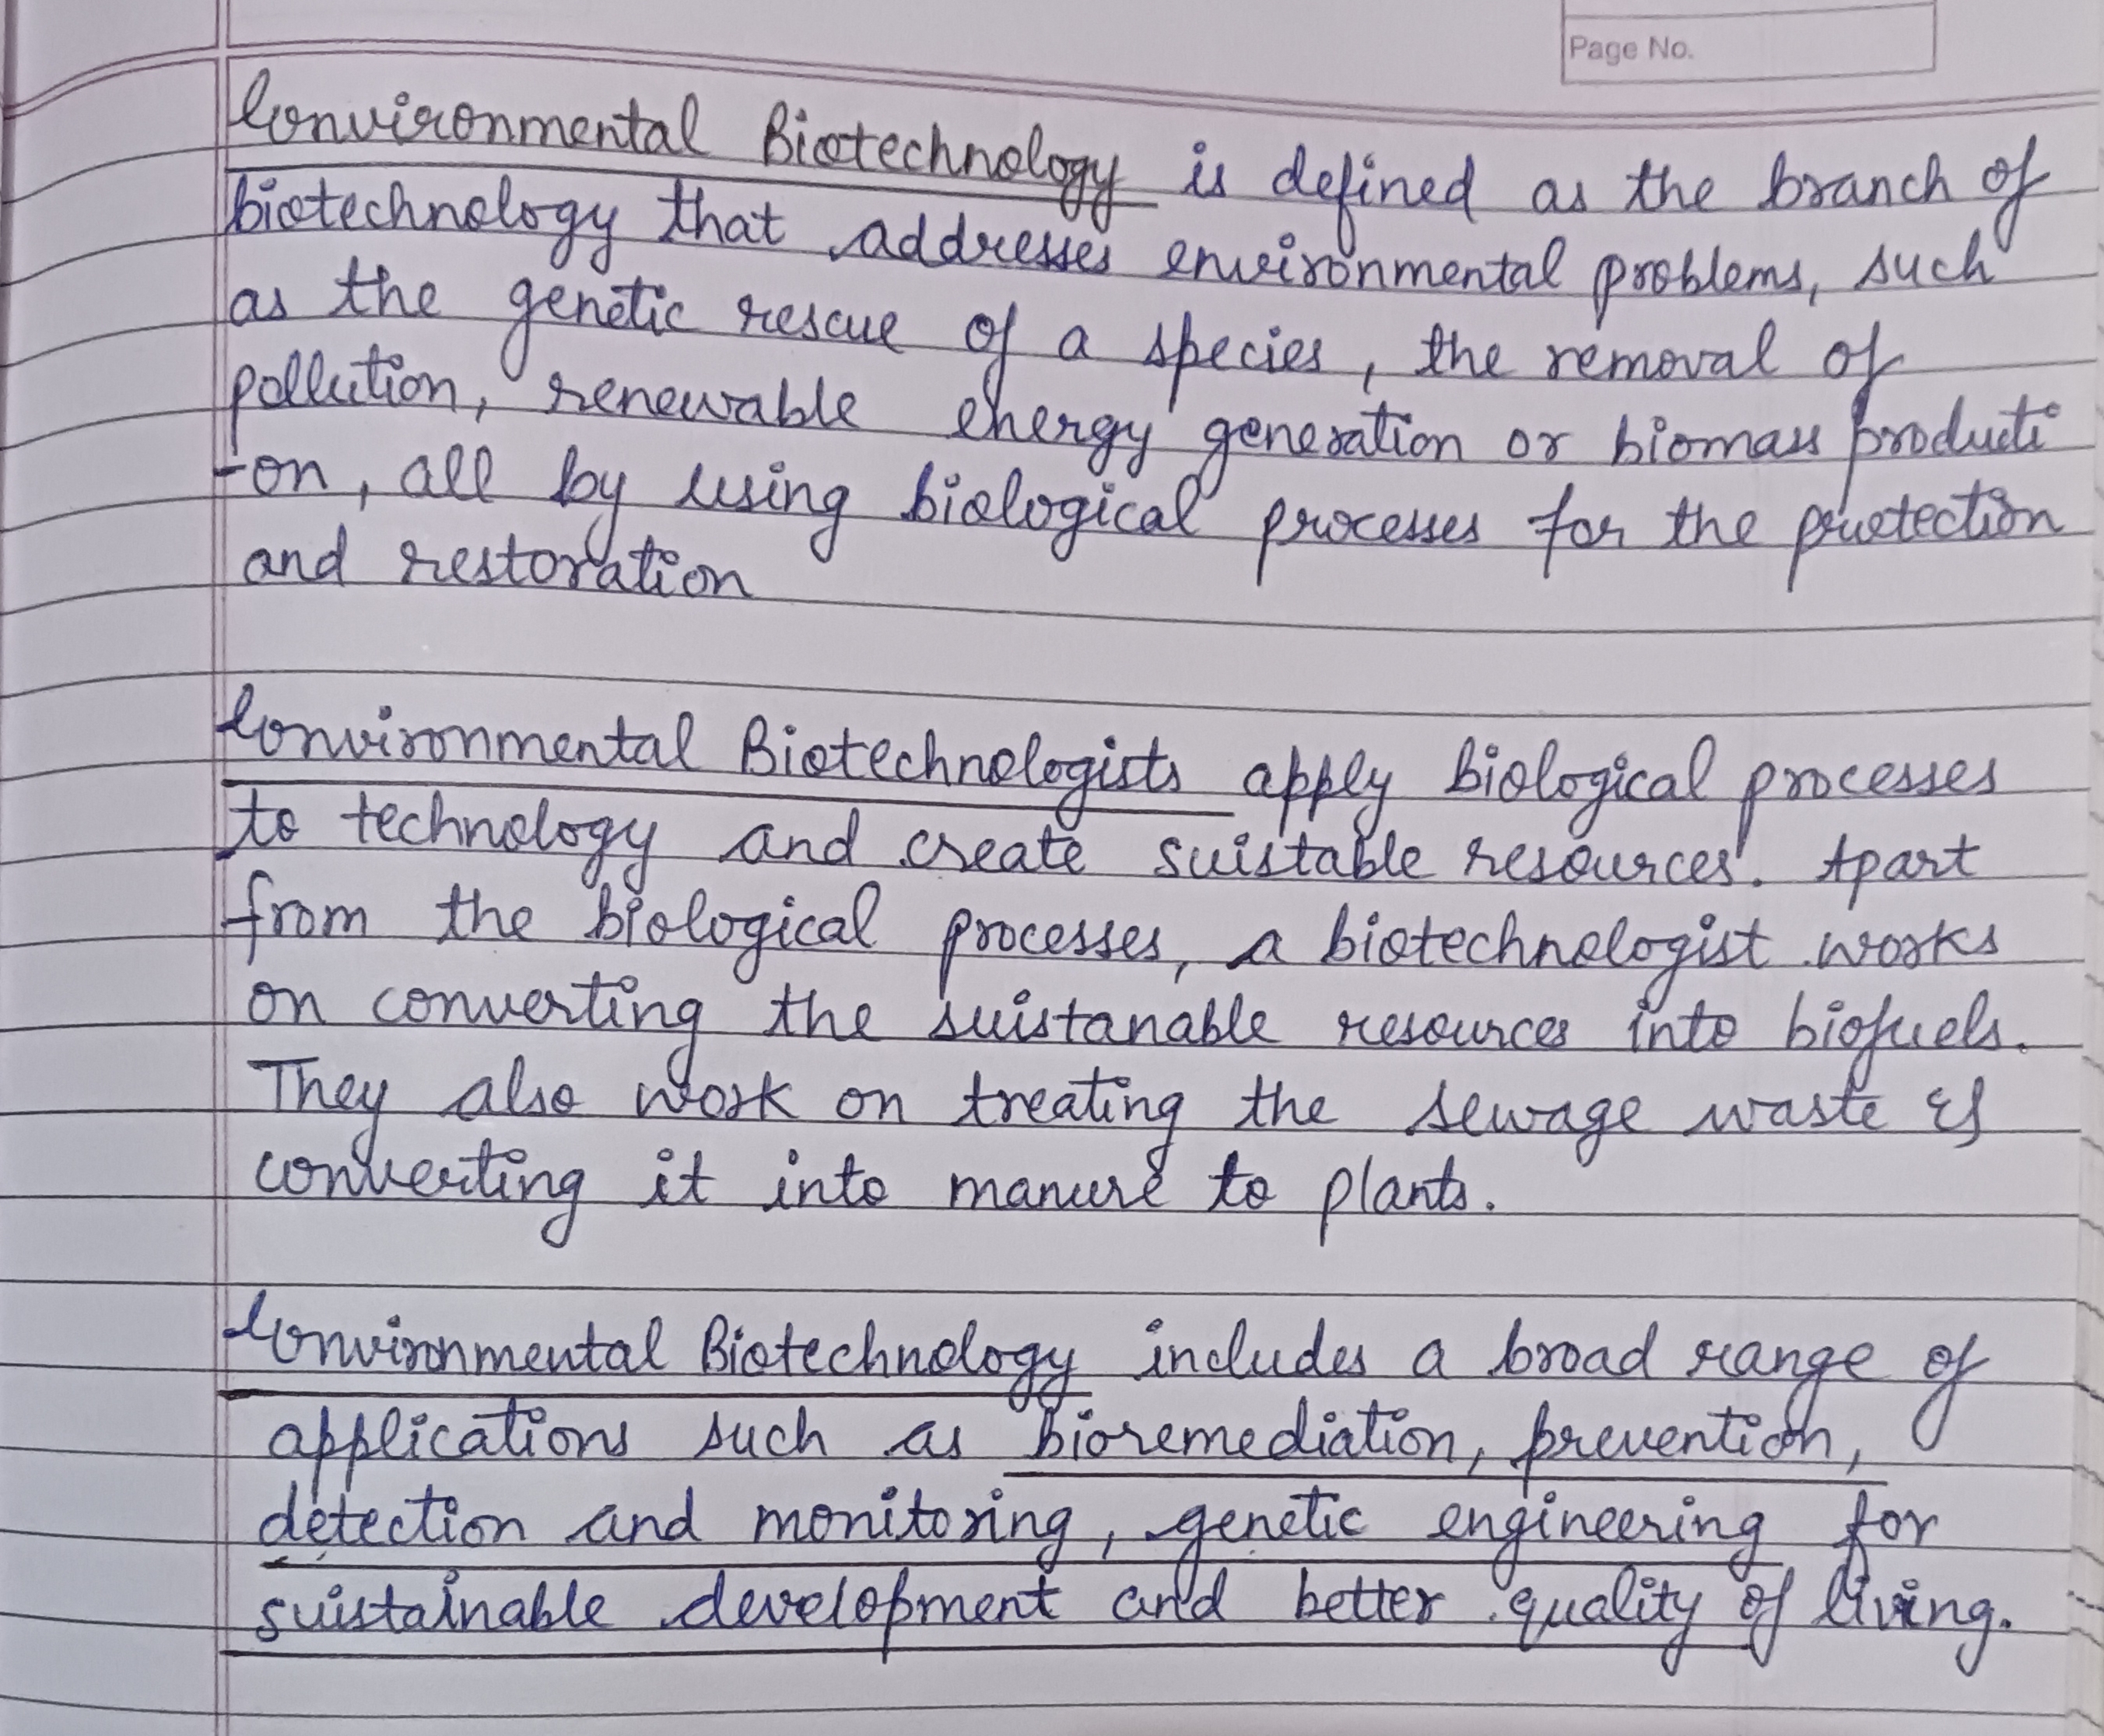 Page No.
Environmental Biotechnology is defined as the branch of
biotechnology that addresses environmental problems, such
as the genetic rescue of a species, the removal of
pollution, renewable energy generation or biomass producti
-on, all by using biological processes for the protection
and restoration
Environmental Biotechnologists apply biological processes
to technology and create suistable resources. Apart
from the biological processes, a biotechnologist works
on converting the suistanable resources into biofuels.
They also work on treating the sewage waste &
converting it into manure to plants.
Environmental Biotechnology includes a broad range of
applications such as bioremediation, prevention,
detection and monitoring, genetic engineering for
suistainable development and better quality of living.